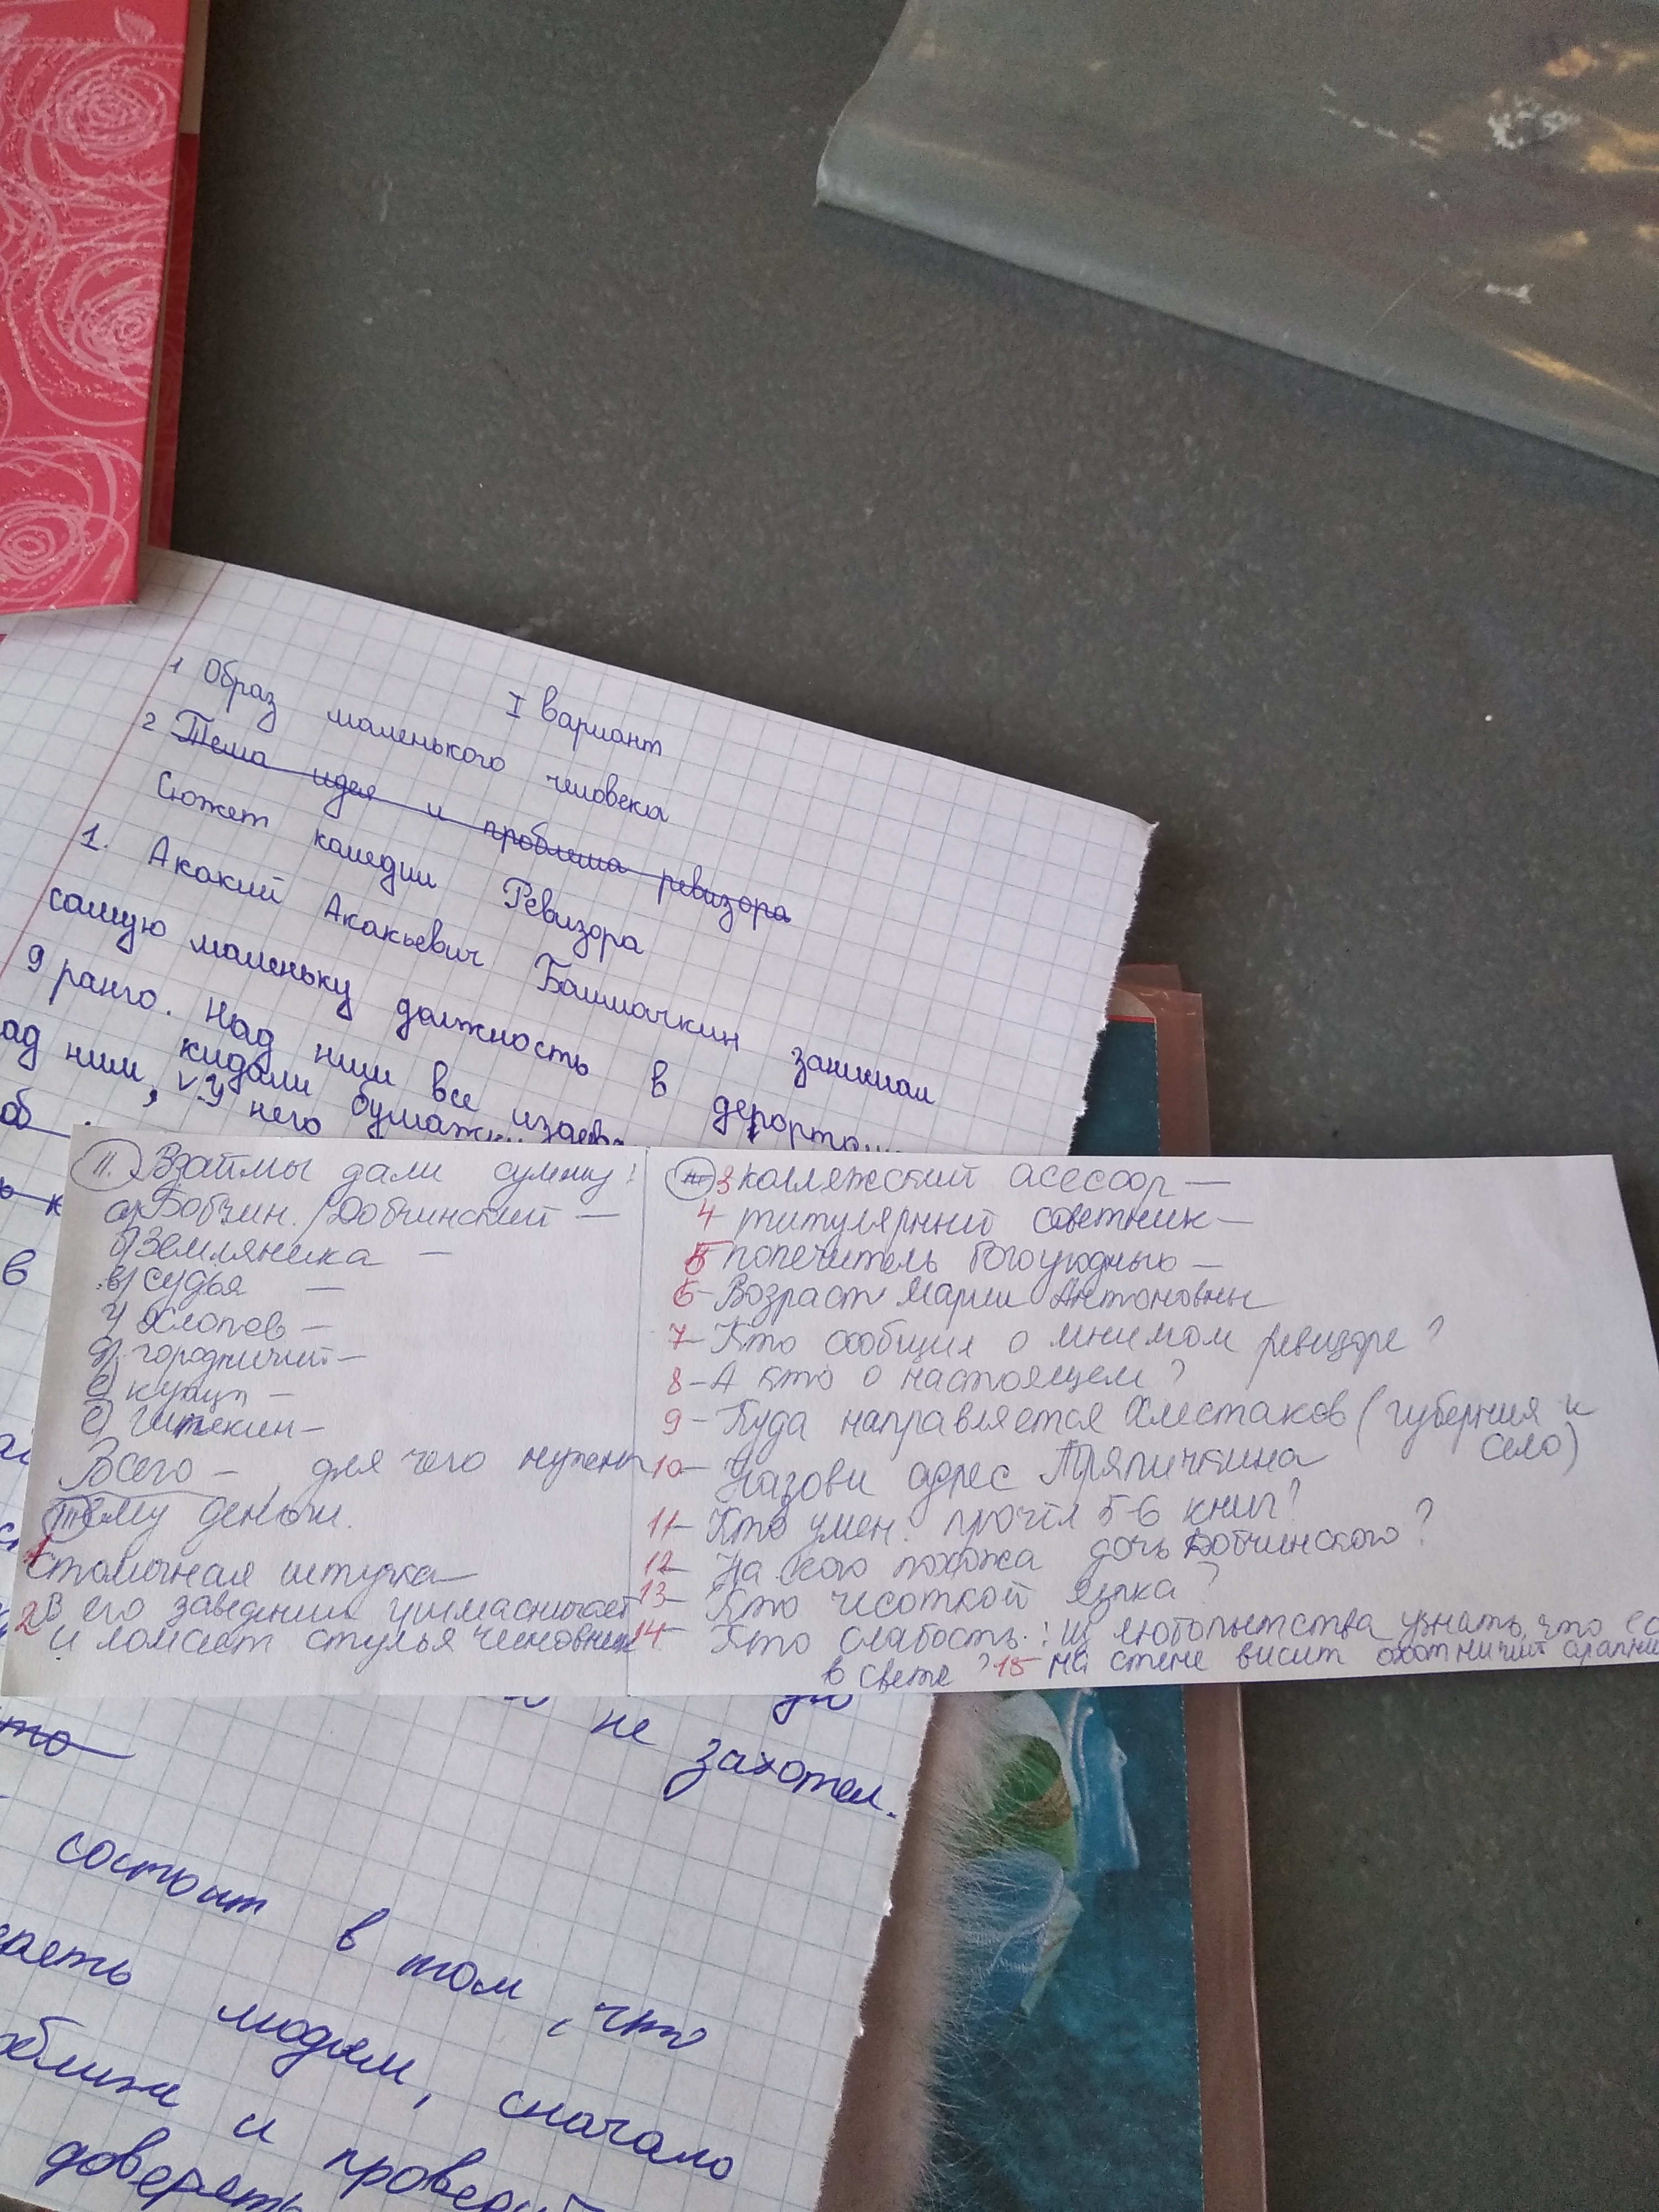 I вариант
1 Образ маленького человека
2 Тема идея и проблема ревизора
Сюжет комедии Ревизора
1. Акакий Акакьевич Башмачкин занимал
самую маленьку должность в
9 ранго. Над ним все
кидали бумажки
ад ним, у него
об
в
II. Взаймы дали сумму:
а) Бобчин. / Добчинский —
б) Земляника —
в) судья —
г) Хлопов —
д) городничий —
е) купцы —
Всего — для чего нужен
тему деньги.
1 столичная штучка —
2 В его заведении
и ломает стулья чиновник
3 коллежский асессор —
4 титулярный советник —
5 попечитель богоугодных —
6 - Возраст Марии Антоновны
7 - Кто сообщил о мнимом ревизоре?
8 - А кто о настоящем?
9 - Куда направляется Хлестаков (губерния и
село)
10 - Назови адрес Тряпичкина
11 - Кто умен. прочёл 5-6 книг?
12 - На кого похожа дочь Добчинского?
13 - Кто чесоткой языка?
14 - Кто слабость: любопытства узнать, что
в свете? 15 - На стене висит охотничий
то
не захотел.
состоит в том, что
людям, сначало
и
доверять